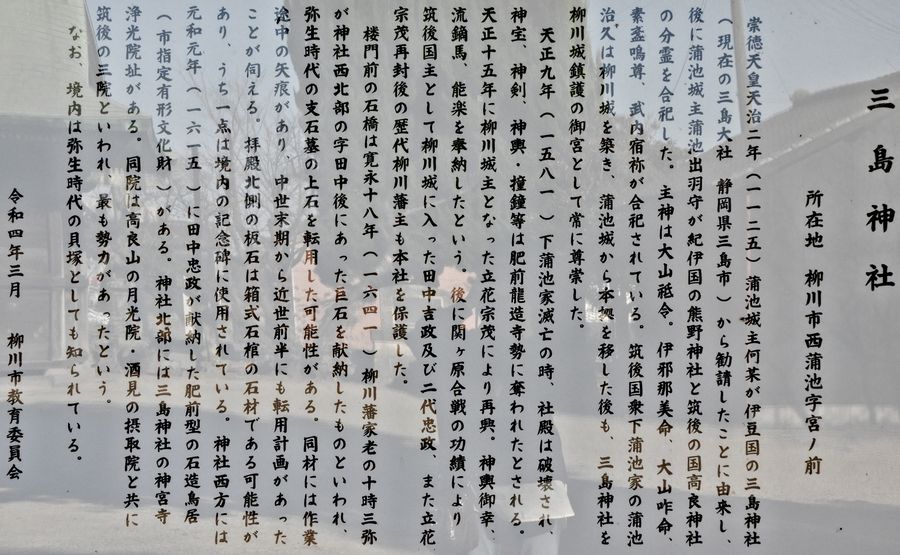 三島神社
所在地　柳川市西蒲池字宮ノ前
崇德天皇天治二年（一一二五）蒲池城主何某が伊豆国の三島神社
（現在の三島大社　静岡県三島市）から勧請したことに由来し、
後に蒲池城主蒲池出羽守が紀伊国の熊野神社と筑後の国高良神社
の分霊を合祀した。主神は大山祗令。伊邪那美命、大山咋命、
素盞鳴尊、武内宿祢が合祀されている。筑後国衆下蒲池家の蒲池
治久は柳川城を築き、蒲池城から本拠を移した後も、三島神社を
柳川城鎮護の御宮として常に尊崇した。
天正九年（一五八一）下蒲池家滅亡の時、社殿は破壊され、
神宝、神剣、神輿・撞鐘等は肥前龍造寺勢に奪われたとされる。
天正十五年に柳川城主となった立花宗茂により再興。神輿御幸、
流鏑馬、能楽を奉納したという。後に関ヶ原合戦の功績により
筑後国主として柳川城に入った田中吉政及び二代忠政、また立花
宗茂再封後の歴代柳川藩主も本社を保護した。
楼門前の石橋は寛永十八年（一六四一）柳川藩家老の十時三弥
が神社西北部の字田中後にあった巨石を献納したものといわれ、
弥生時代の支石墓の上石を転用した可能性がある。同材には作業
途中の矢痕があり、中世末期から近世前半にも転用計画があった
ことが伺える。拝殿北側の板石は箱式石棺の石材である可能性が
あり、うち一点は境内の記念碑に使用されている。神社西方には
元和元年（一六一五）に田中忠政が献納した肥前型の石造鳥居
（市指定有形文化財）がある。神社北部には三島神社の神宮寺
浄光院址がある。同院は高良山の月光院・酒見の摂取院と共に
筑後の三院といわれ、最も勢力があったという。
なお、境内は弥生時代の貝塚としても知られている。
令和四年三月　柳川市教育委員会